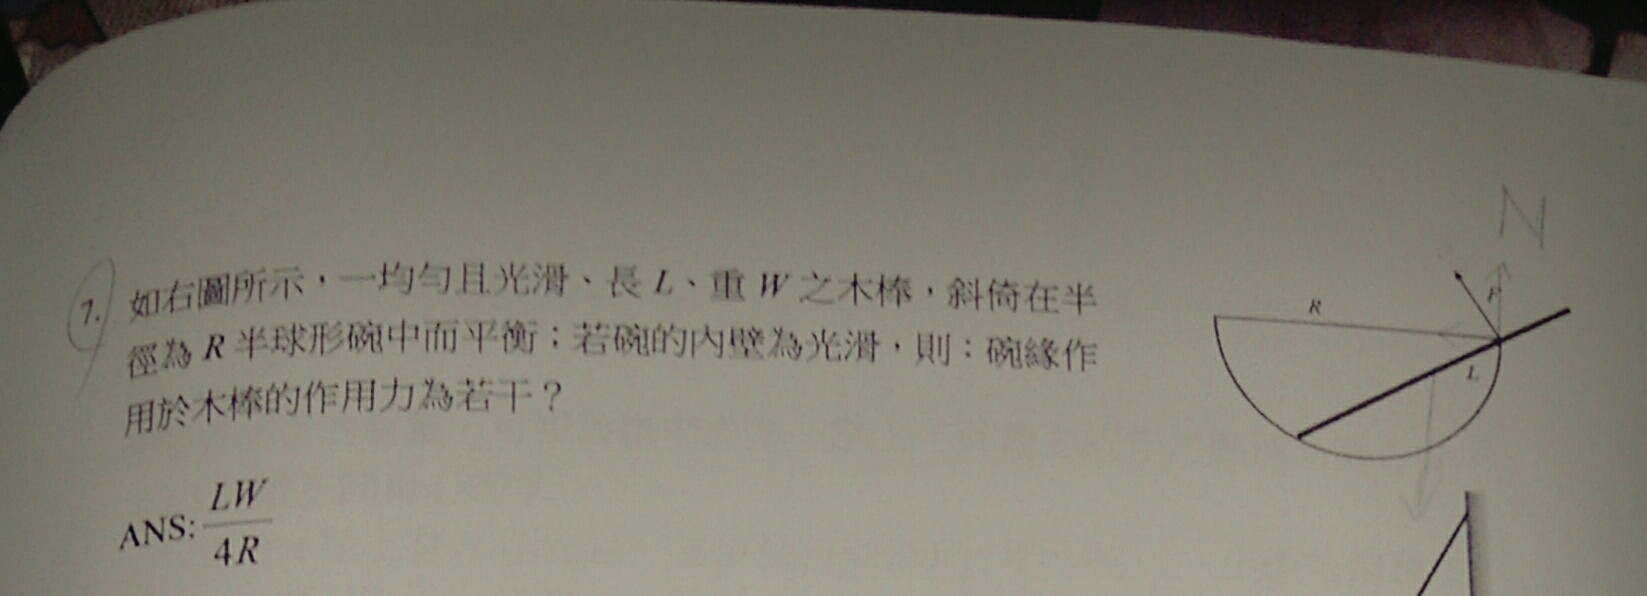 N
7. 如右圖所示,一均勻且光滑、長 L、重 W 之木棒,斜倚在半
徑為 R 半球形碗中而平衡;若碗的內壁為光滑,則:碗緣作
用於木棒的作用力為若干?
R
F
L
ANS: LW/4R